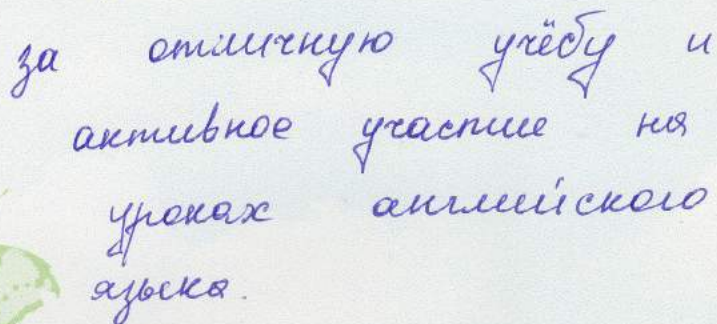 за отличную учёбу и
активное участие на
уроках английского
языка.